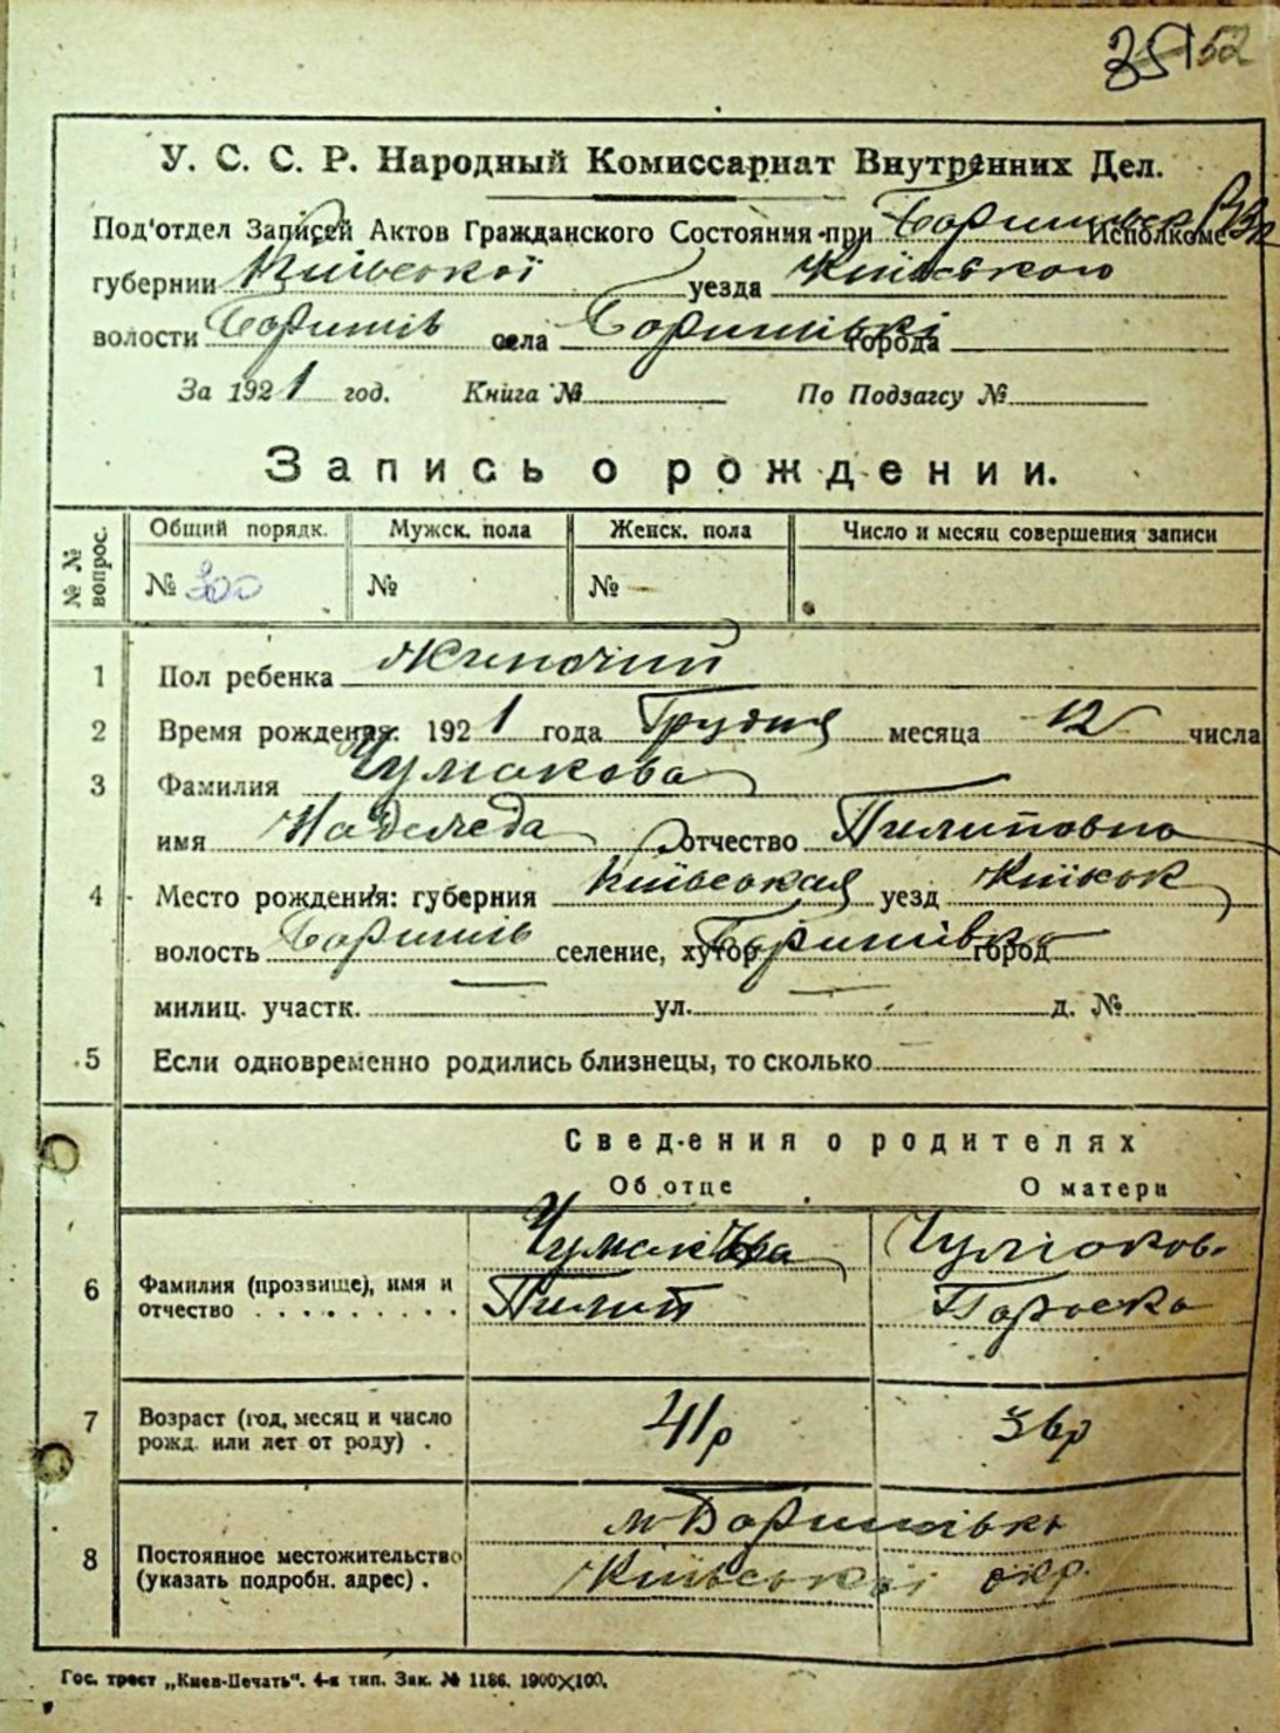 35 52
У. С. С. Р. Народный Комиссариат Внутренних Дел.
Под'отдел Записей Актов Гражданского Состояния при Исполкоме
губернии Київської уезда Київського
волости Боришів села Боришівкі города
За 1921 год. Книга № По Подзагсу №
Запись о рождении.
№ № вопрос. Общий порядк. Мужск. пола Женск. пола Число и месяц совершения записи
№ 300 № №
1 Пол ребенка Жиночий
2 Время рождения: 1921 года Грудня месяца 12 числа
3 Фамилия Чумакова
имя Надежда отчество Пилиповна
4 Место рождения: губерния Київськая уезд
волость селение, хутор Боришівка город
милиц. участк. ул. д. №
5 Если одновременно родились близнецы, то сколько
Сведения о родителях
Об отце О матери
6 Фамилия (прозвище), имя и отчество Чумакова Пилип Чумаков. Параска
7 Возраст (год, месяц и число рожд. или лет от роду) . 41р 36р
8 Постоянное местожительство (указать подробн. адрес) . м Боришівкі Київської окр.
Гос. трест „Киев-Печать“. 4-я тип. Зак. № 1186. 1900×100.